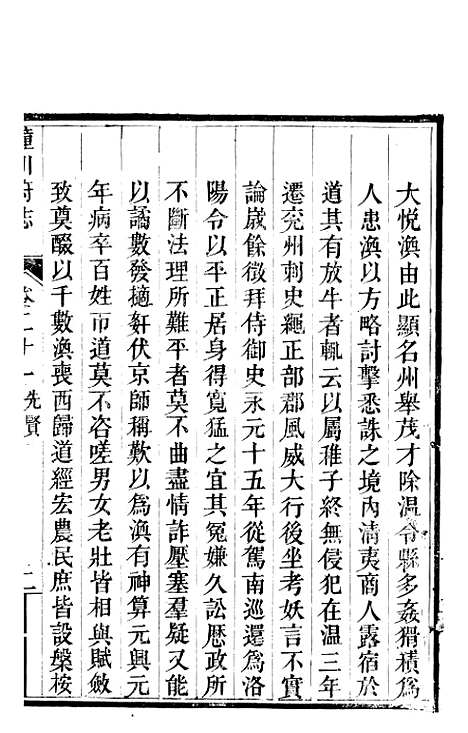 大悅渙由此顯名州舉茂才除溫令縣多姦猾積爲
人患渙以方略討擊悉誅之境內清夷商人露宿於
道其有放牛者輒云以屬稚子終無侵犯在溫三年
遷兖州刺史繩正部郡風威大行後坐考妖言不實
論歲餘徵拜侍御史永元十五年從駕南巡還爲洛
陽令以平正居身得寬猛之宜其冤嫌久訟歷政所
不斷法理所難平者莫不曲盡情詐壓塞羣疑又能
以譎數發擿姧伏京師稱歎以爲渙有神算元興元
年病卒百姓帀道莫不咨嗟男女老壯皆相與賦斂
致奠醊以千數渙喪西歸道經宏農民庶皆設槃桉
潼川府志
卷二十一先賢
二